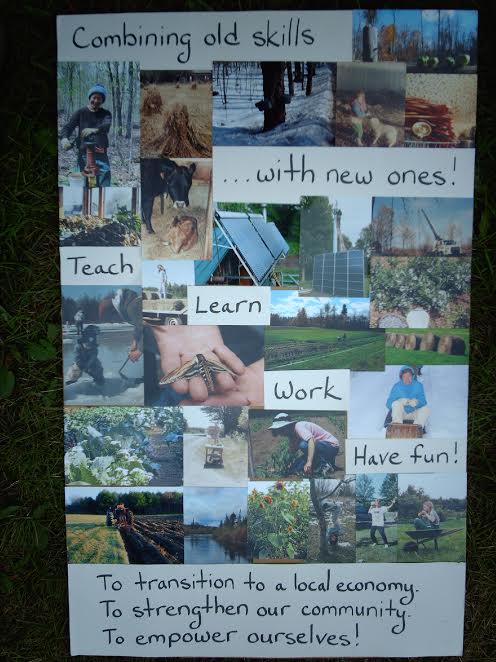 Combining old skills
...with new ones!
Teach
Learn
Work
Have fun!
To transition to a local economy.
To strengthen our community.
To empower ourselves!